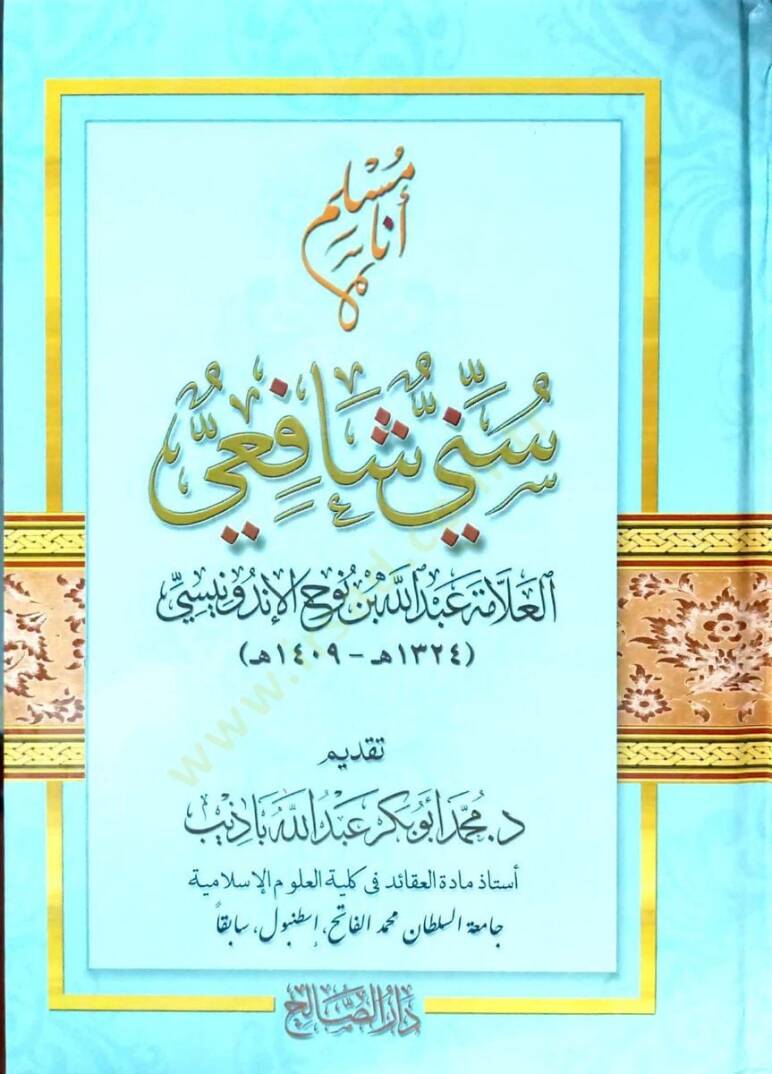 أنا مُسْلِم
سُنِّيٌّ شَافِعِيٌّ
العَلَّامَة عَبْدُ اللَّه بْن نُوح الإِندُونِيسِيّ
(١٣٢٤هـ - ١٤٠٩هـ)
تقديم
د. مُحمَّد أَبُو بَكر عَبْدُ اللَّه بَاذِيب
أستاذ مادة العقائد في كلية العلوم الإسلامية
جامعة السلطان محمد الفاتح، إسطنبول، سابقاً
دَارُ الصَّالِح